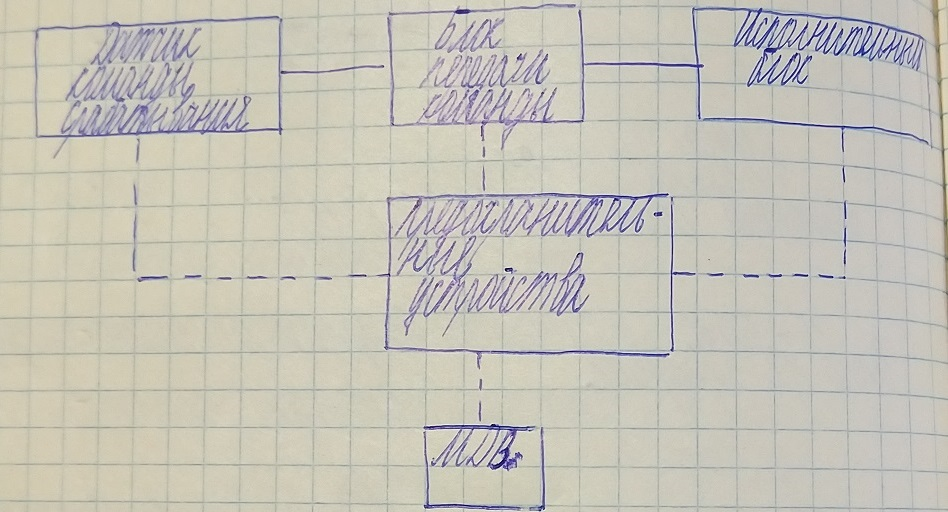 Датчик
команды
срабатывания
Блок
передачи
команды
Исполнительный
блок
предохранитель-
ные
устройства
МДВ